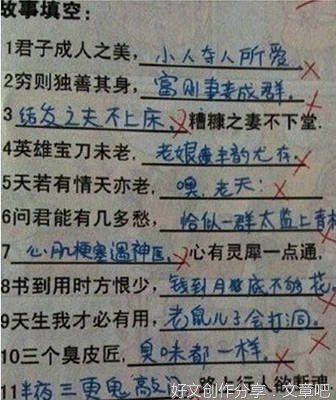 故事填空：
1君子成人之美，小人夺人所爱。
2穷则独善其身，富则妻妾成群。
3结发之夫不上床，糟糠之妻不下堂.
4英雄宝刀未老，老娘丰韵尤存。
5天若有情天亦老，噢,老天：
6问君能有几多愁，恰似一群太监上青
7心肌梗塞遇神医，心有灵犀一点通，
8书到用时方恨少，钱到月底不够花。
9天生我才必有用，老鼠儿子会打洞。
10三个臭皮匠，臭味都一样。
11半夜三更鬼敲门，路上行人欲断魂
好文创作分享：文章吧